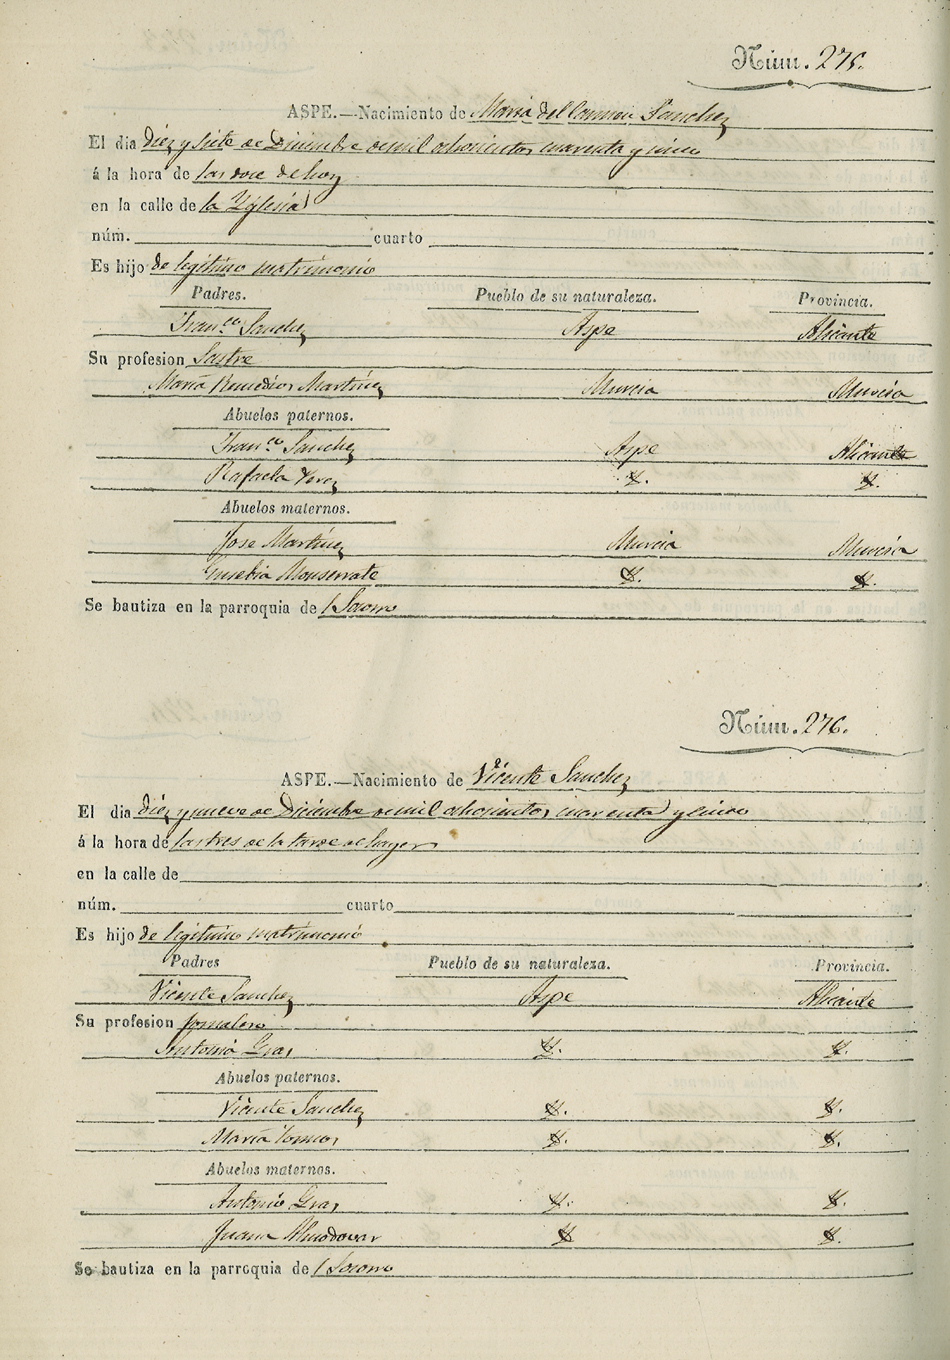 Núm. 275.
ASPE.—Nacimiento de Maria del Carmen Sanchez
El dia diez y siete de Diciembre de mil ochocientos cuarenta y cinco
á la hora de las doce de hoy
en la calle de la Yglesia
núm. cuarto
Es hijo de legitimo matrimonio
Padres. Pueblo de su naturaleza. Provincia.
Fran.co Sanchez Aspe Alicante
Su profesion Sastre
Maria Remedios Martinez Murcia Murcia
Abuelos paternos.
Fran.co Sanchez Aspe Alicante
Rafaela
Abuelos maternos.
Jose Martinez Murcia Murcia
Eusebia Monserrate
Se bautiza en la parroquia de
Núm. 276.
ASPE.—Nacimiento de Vicente Sanchez
El dia diez y nueve de Diciembre de mil ochocientos cuarenta y cinco
á la hora de las tres de la tarde de
en la calle de
núm. cuarto
Es hijo de legitimo matrimonio
Padres Pueblo de su naturaleza. Provincia.
Vicente Sanchez Aspe Alicante
Su profesion Jornalero
Antonia Gras
Abuelos paternos.
Vicente Sanchez
Maria
Abuelos maternos.
Antonio Gras
Juana Almodovar
Se bautiza en la parroquia de